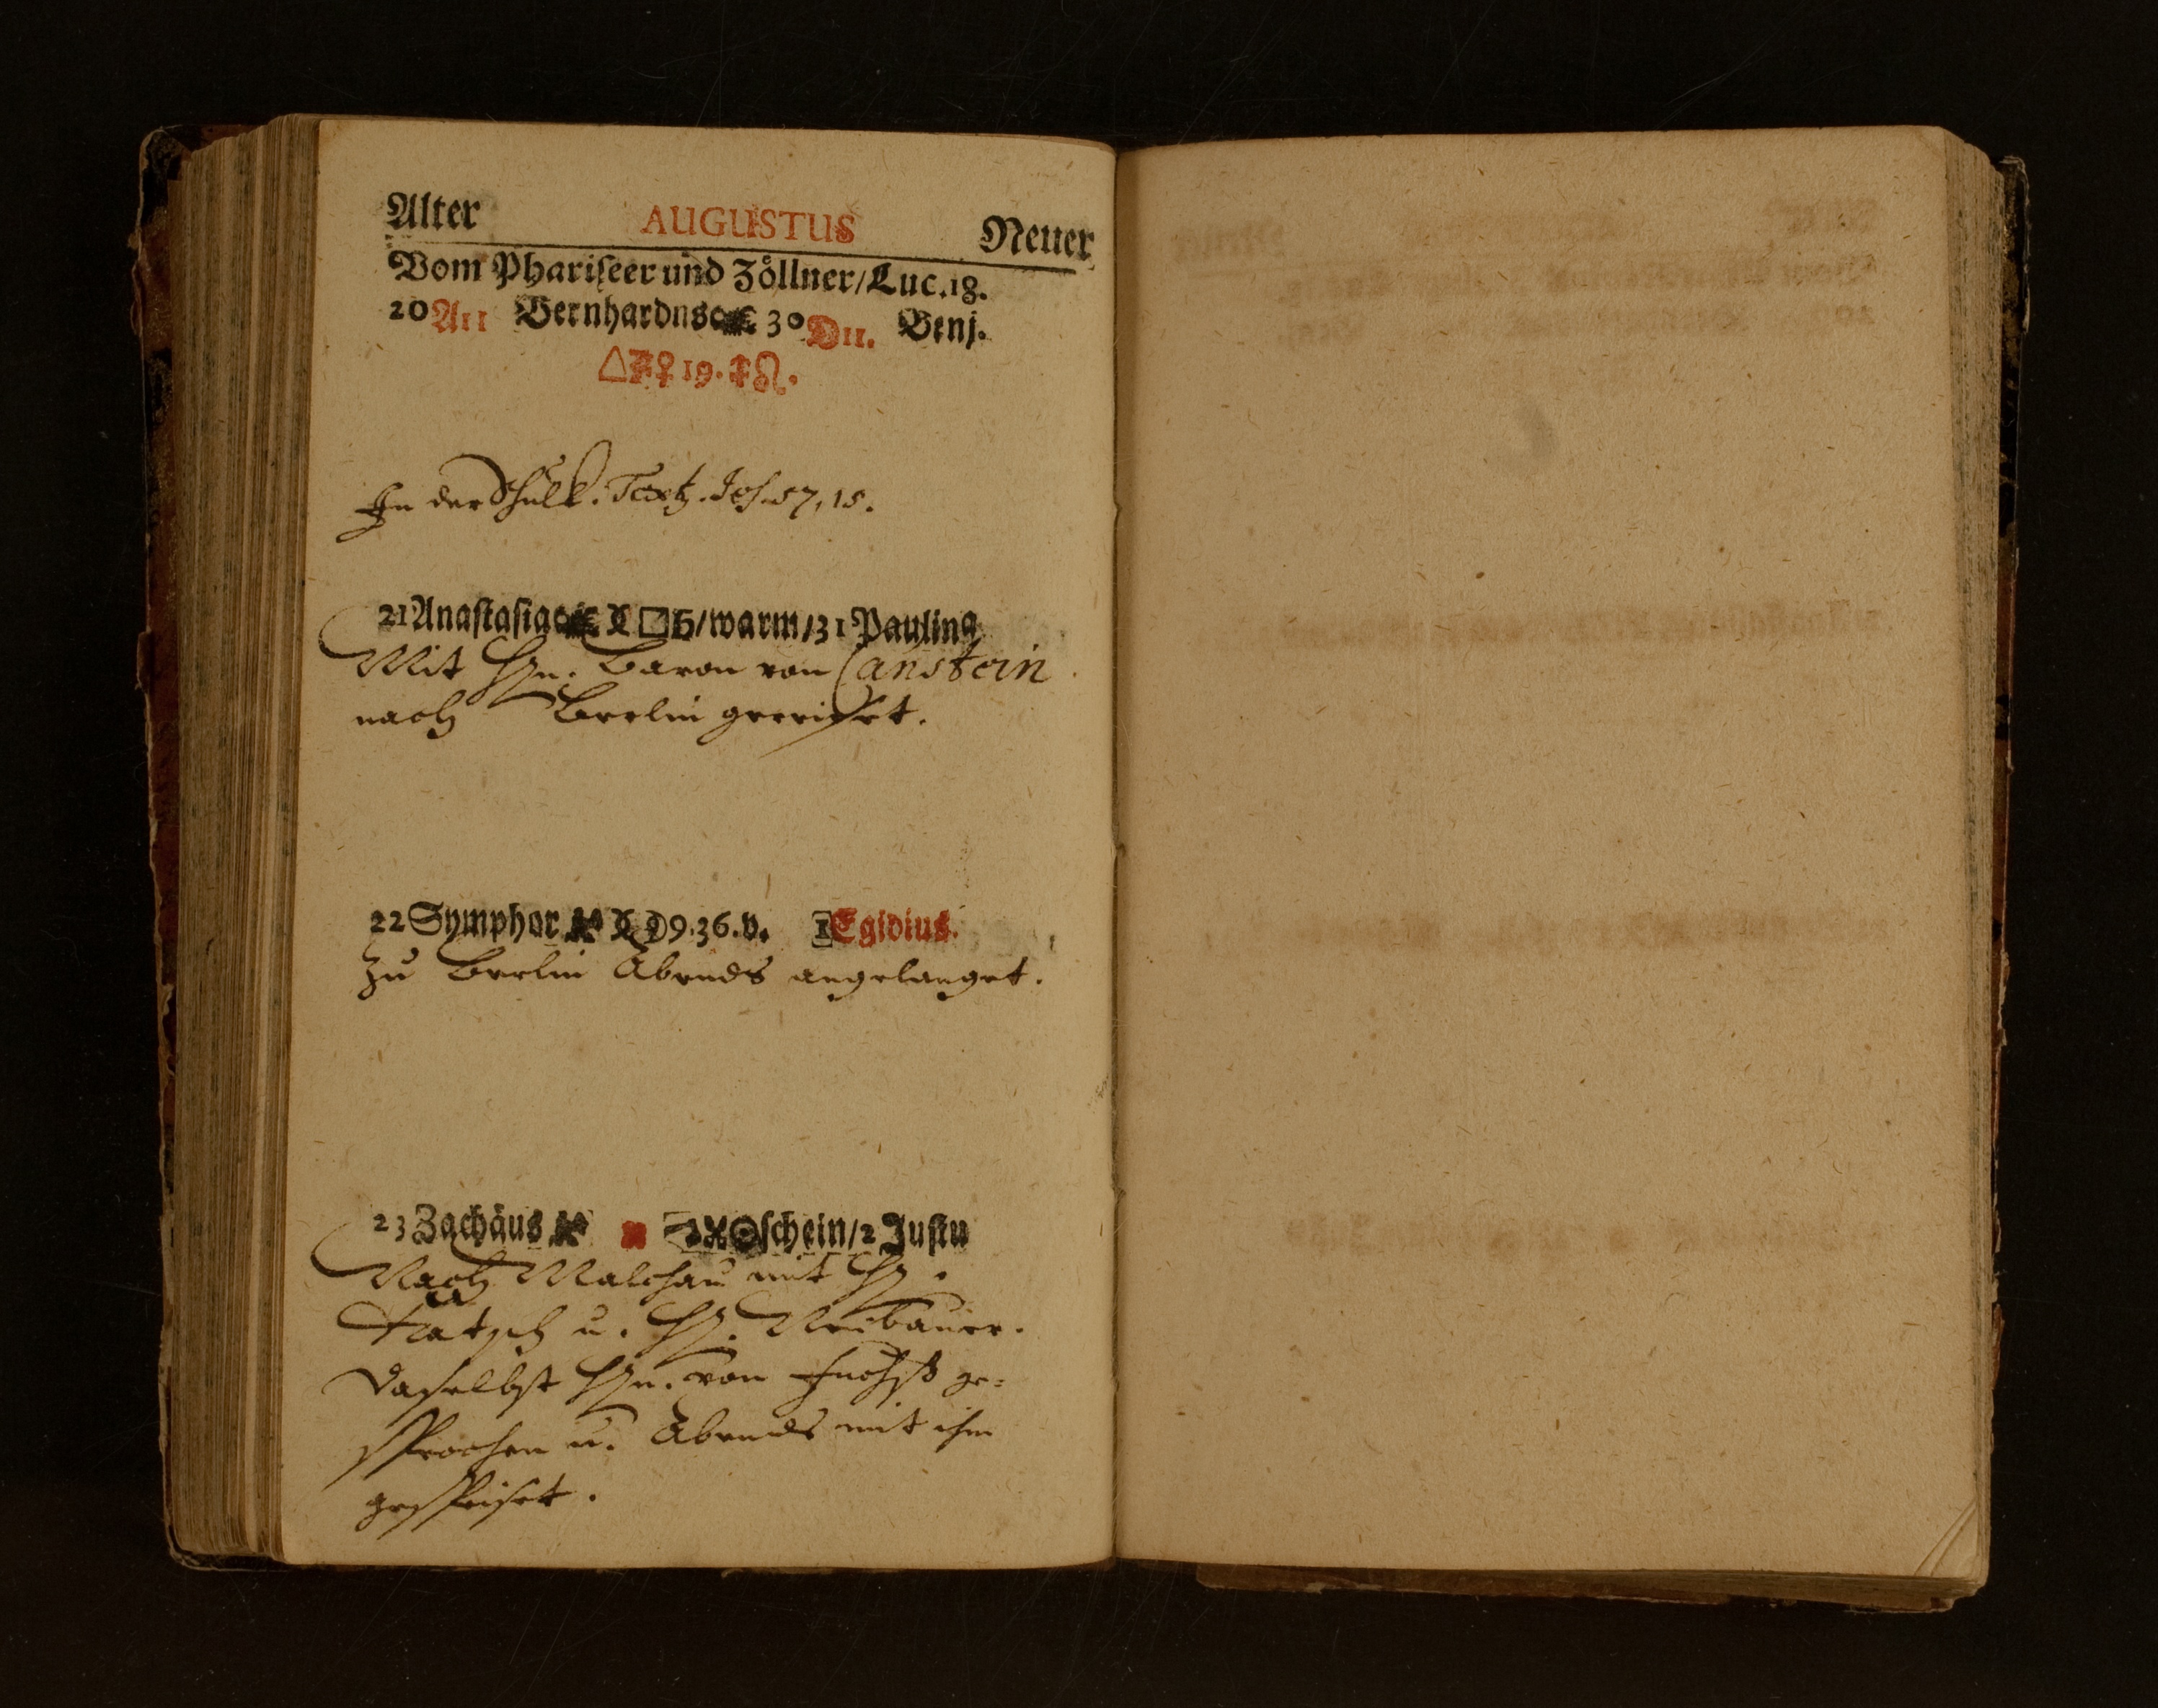 Alter AUGUSTUS Neuer
Vom Phariseer und Zöllner/Luc.18.
20 A11 Bernhardus 30 D11. Benj.
△♃♀19.♌.
In der Schull. Text. Jes. 57, 15.
21 Anastasia ☾□♄/warm/31 Paulina
Mit Hn. Baron von Canstein
nach Berlin gereiset.
22 Symphor 9.36.v. 1 Egidius.
Zu Berlin Abends angelanget.
23 Zachäus ☉schein/2 Justu
Nach Malchau mit H.
u. H. Neubauer.
Daselbst Hn. von Fuchß ge-
sprochen u. Abends mit ihm
gespeiset.